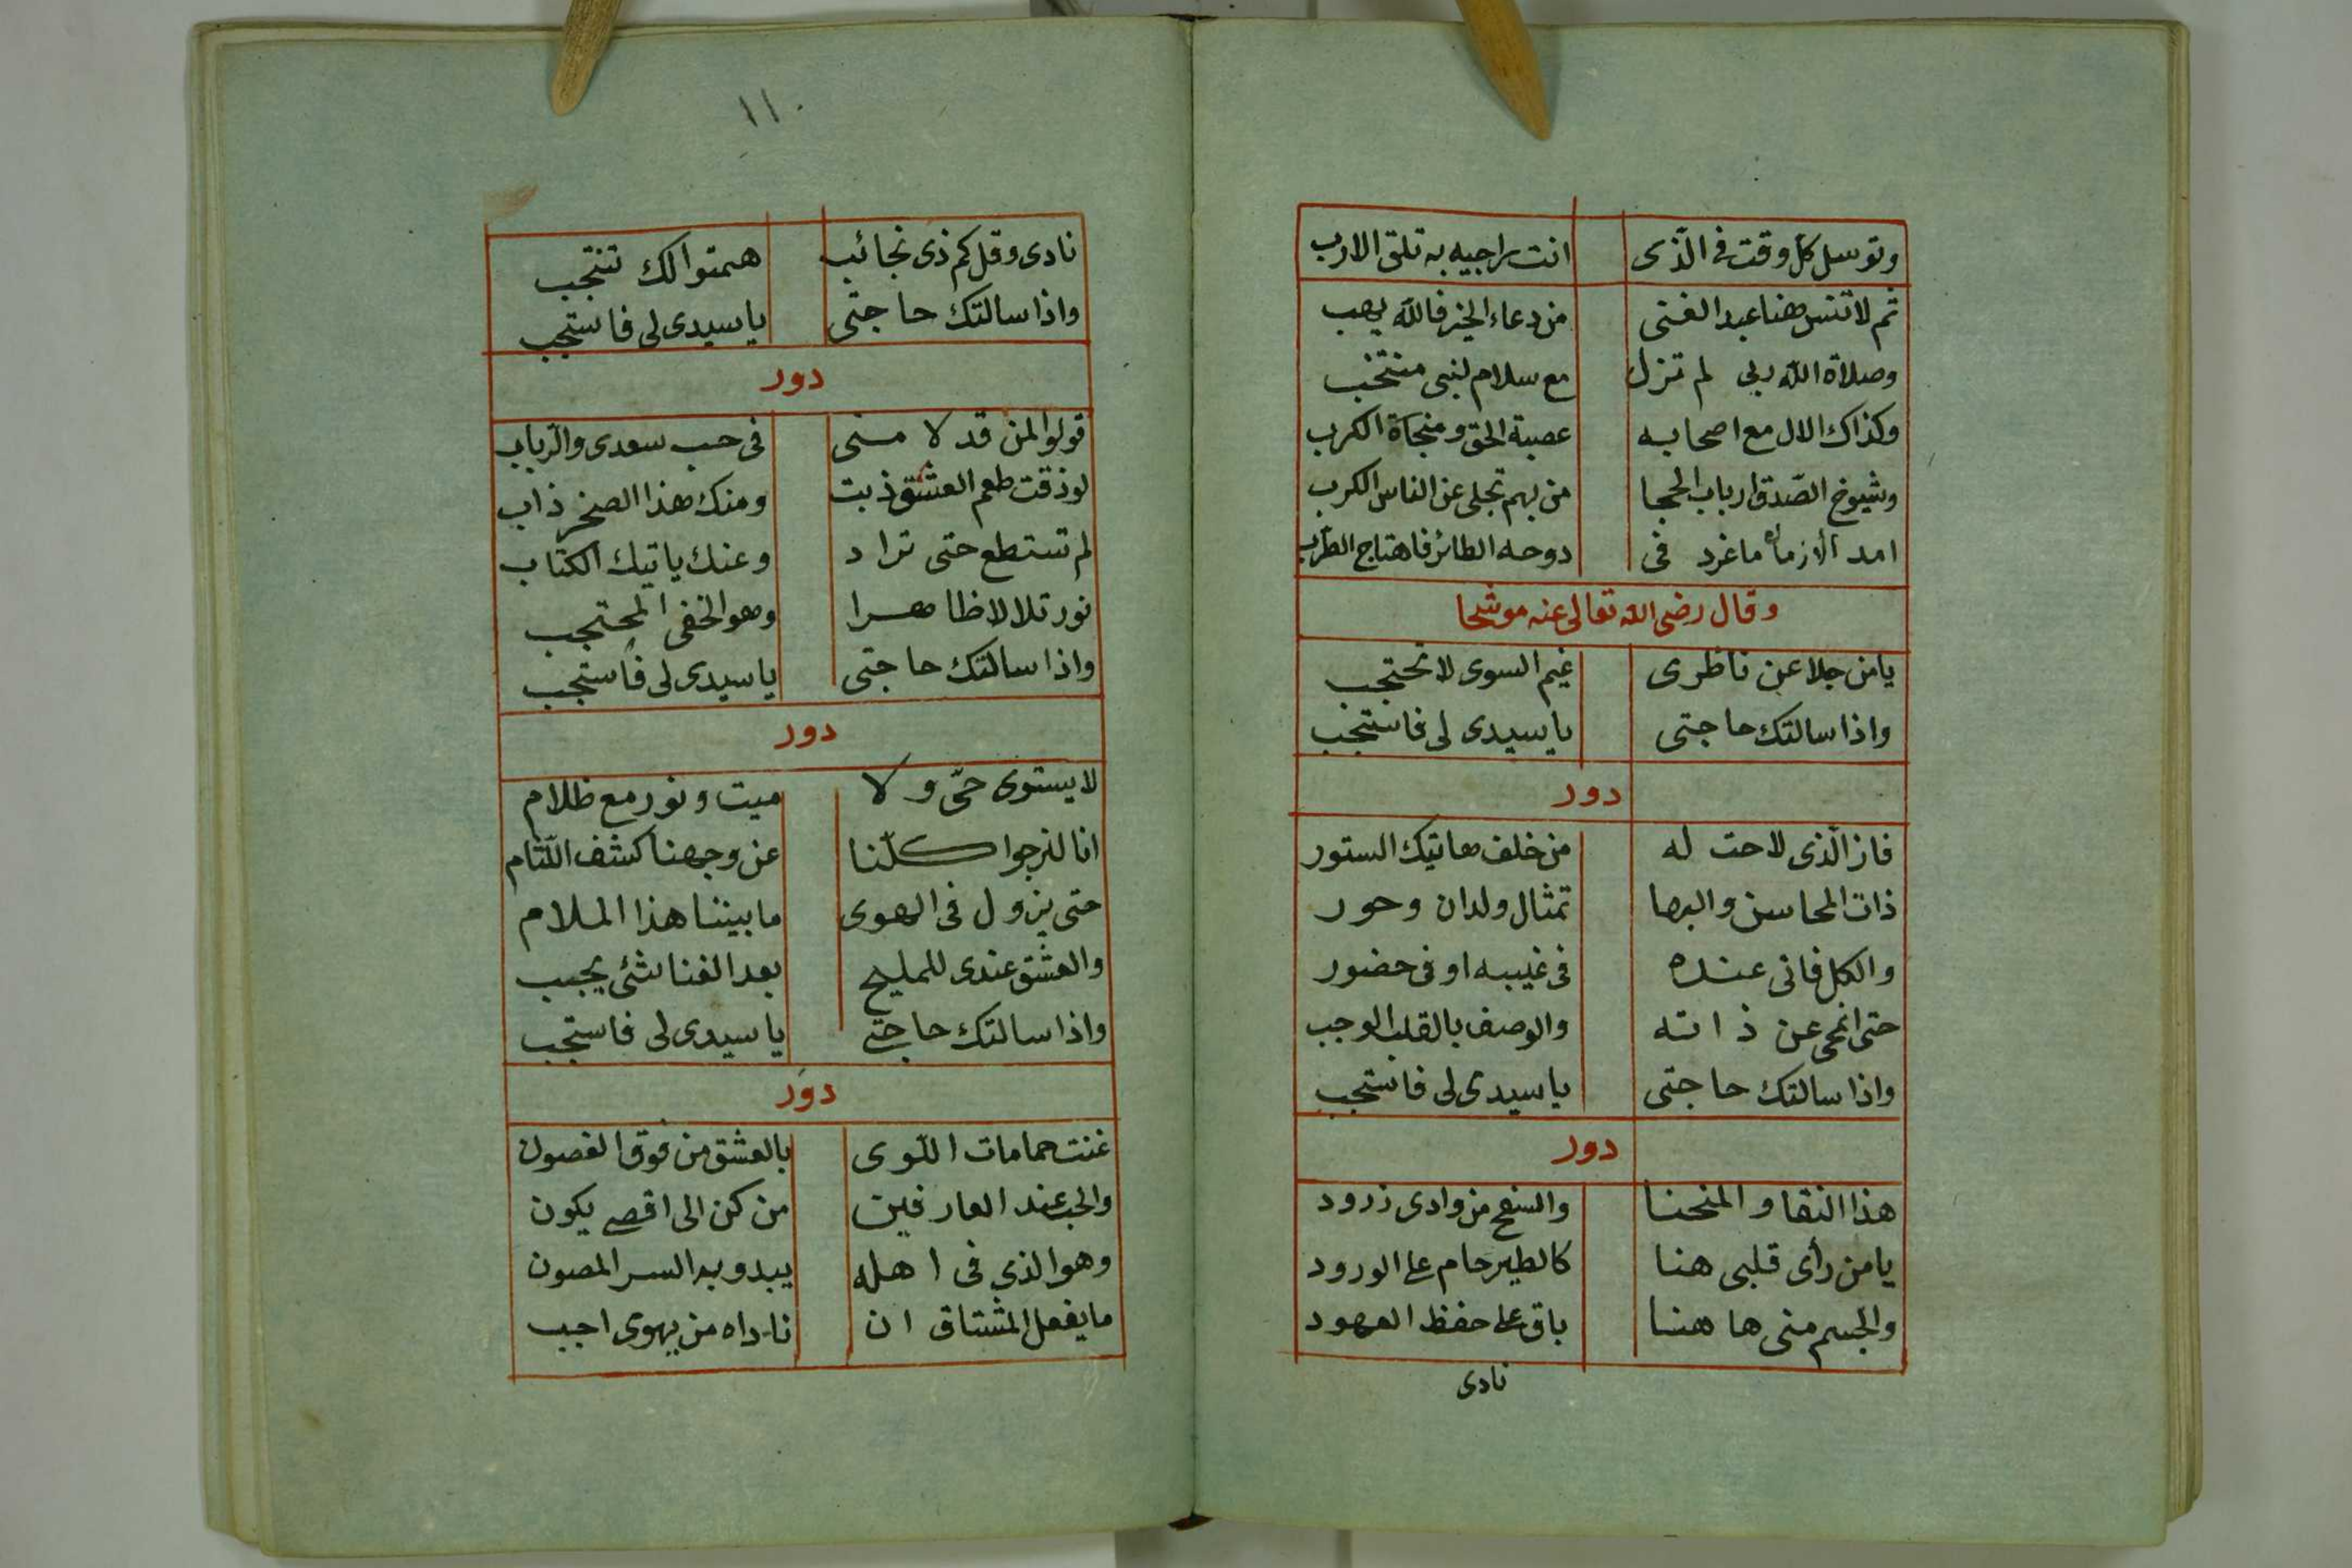 وتوسل كل وقت فى الّذى انت راجيه به تلقى الارب
ثم لا تنس هنا عبد الغنى من دعاء الخير فالله يهب
وصلاة الله ربى لم تزل مع سلام لنبى منتخب
وكذاك الال مع اصحابه عصبة الحق ومنجاة الكرب
وشيوخ الصّدق ارباب الحجا من بهم تجلى عن الناس الكرب
امد الازمان ما غرد فى دوحه الطائر فاهتاج الطرب
وقال رضى الله تعالى عنه موشحا
يا من جلا عن ناظرى غيم السوى لا تحتجب
واذا سالتك حاجتى يا سيدى لى فاستجب
دور
فاز الّذى لاحت له من خلف هاتيك الستور
ذات المحاسن والبها تمثال ولدان وحور
والكل فانى عنده فى غيبه او فى حضور
حتى انمحى عن ذاته والوصف بالقلب الوجب
واذا سالتك حاجتى يا سيدى لى فاستجب
دور
هذا النقا والمنحنا والسفح من وادى زرود
يا من رأى قلبى هنا كالطير حام على الورود
والجسم منى ها هنا باق على حفظ العهود
نادى
١١٠
نادى وقل كم ذى نجائب همتوا لك تنتجب
واذا سالتك حاجتى يا سيدى لى فاستجب
دور
قولوا لمن قد لا منى فى حب سعدى والرباب
لو ذقت طعم العشق ذبت ومنك هذا الصخر ذاب
لم تستطع حتى تراد وعنك ياتيك الكتاب
نور تلالا ظاهرا وهو الخفى المحتجب
واذا سالتك حاجتى يا سيدى لى فاستجب
دور
لا يستوى حىّ ولا ميت ونور مع ظلام
انا لنرجوا كلّنا عن وجهنا كشف اللّثام
حتى يزول فى الهوى ما بيننا هذا الملام
والعشق عندى للمليح بعد الفنا شئ يجب
واذا سالتك حاجتى يا سيدى لى فاستجب
دور
غنت حمامات اللّوى بالعشق من فوق الغصون
والحب عند العارفين من كن الى اقصى يكون
وهو الذى فى اهله يبدو به السر المصون
ما يفعل المشتاق ان ناداه من يهوى اجب